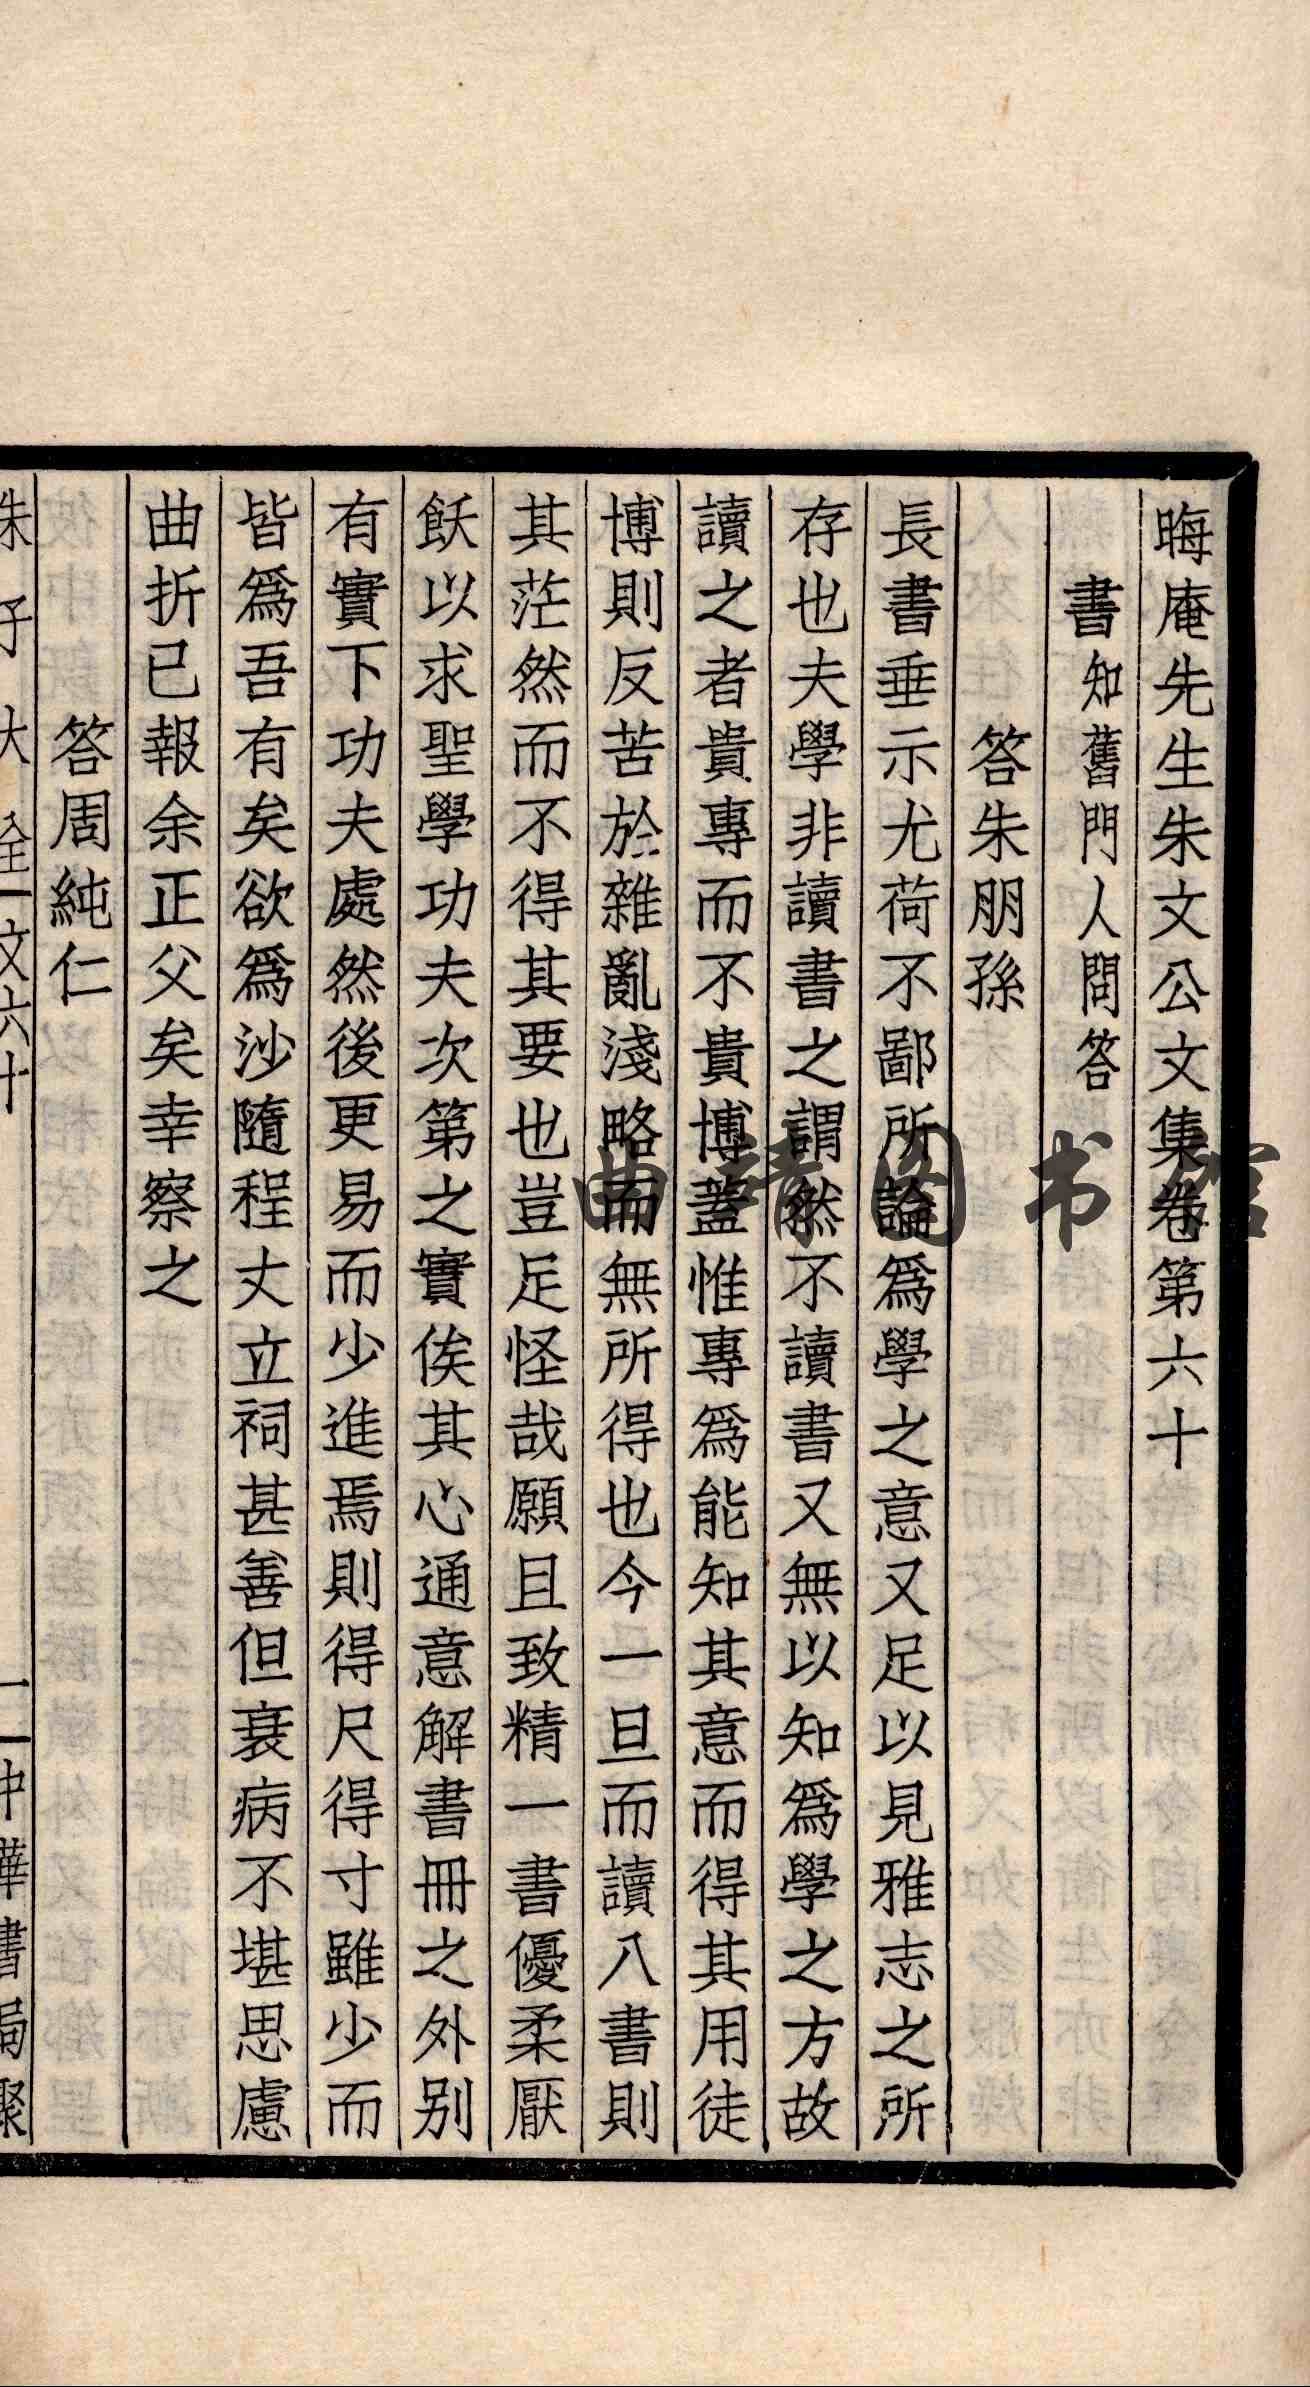 晦庵先生朱文公文集卷第六十
書知舊門人問答
答朱朋孫
長書垂示尤荷不鄙所論爲學之意又足以見雅志之所
存也夫學非讀書之謂然不讀書又無以知爲學之方故
讀之者貴專而不貴博蓋惟專爲能知其意而得其用徒
博則反苦於雜亂淺略而無所得也今一旦而讀八書則
其茫然而不得其要也豈足怪哉願且致精一書優柔厭
飫以求聖學功夫次第之實俟其心通意解書冊之外別
有實下功夫處然後更易而少進焉則得尺得寸雖少而
皆爲吾有矣欲爲沙隨程丈立祠甚善但衰病不堪思慮
曲折已報余正父矣幸察之
答周純仁
朱子大全 文六十 一 中華書局聚
曲靖图书馆